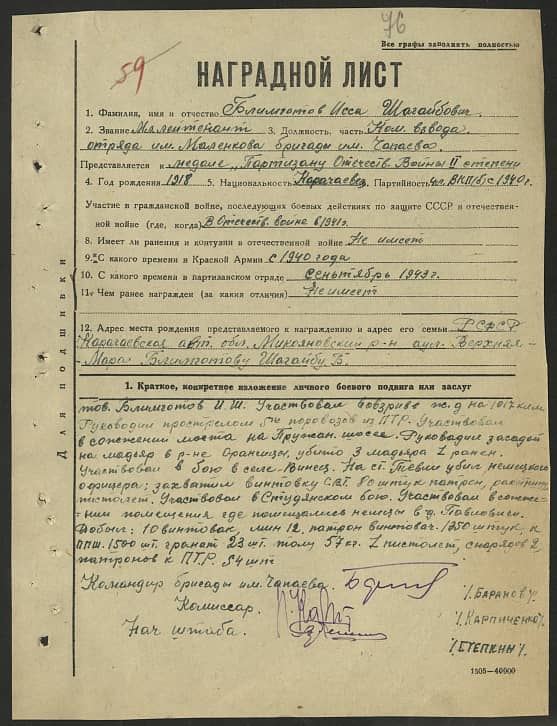 76
Все графы заполнять полностью
59
НАГРАДНОЙ ЛИСТ
1. Фамилия, имя и отчество Блимготов Исса Шагайбович.
2. Звание Мл. лейтенант 3. Должность, часть Ком. взвода
отряда им. Маленкова бригады им. Чапаева.
Представляется к медале „Партизану Отечеств. Войны II степени
4. Год рождения 1918 5. Национальность Карачаевец 6. Партийность чл. ВКП(б) с 1940 г.
Участие в гражданской войне, последующих боевых действиях по защите СССР и отечествен-
ной войне (где, когда) В Отечеств. войне в 1941 г.
8. Имеет ли ранения и контузии в отечественной войне Не имеет
9. С какого времени в Красной Армии с 1940 года
10. С какого времени в партизанском отряде сеньтябрь 1943 г.
11. Чем ранее награжден (за какия отличия) Не имеет
12. Адрес места рождения представляемого к награждению и адрес его семьи РСФСР
Карачаевская авт. обл. Микояновский р-н аул. Верхняя-
- Мара Блимготову Шагайбу Б.
Для подшивки
1. Краткое, конкретное изложение личного боевого подвига или заслуг
тов. Блимготов И. Ш. Участвовал во взриве ж.д на 1017 км.
Руководил прострелом 5ти поровозов из ПТР. Участвовал
в сожжении моста на Пружан. шоссе. Руковадил засадой
на мадьяр в р-не Оранчицы, убито 3 мадьяра 1 ранен.
Участвовал в бою в селе Винец. На ст. Тевли убил немецкого
офицера; захватил винтовку СВТ. 80 штук патрон,
пистолет. Участвовал в Студянском бою. Участвовал в сожже-
нии помещения где помещались немцы в д. Павловичи.
Добыл: 10 винтовак, мин 12, патрон винтовоч. 1350 штук, к
ППШ. 1500 шт, гранат 23 шт. толу 57 кг. 1 пистолет, снарядов 2,
патронов к ПТР. 54 шт
Командир бригады им. Чапаева.
/. БАРАНОВ /.
Комиссар.
/. КАРПИЧЕНКО /.
Нач штаба.
/. СТЕПКИН /.
1505—40000